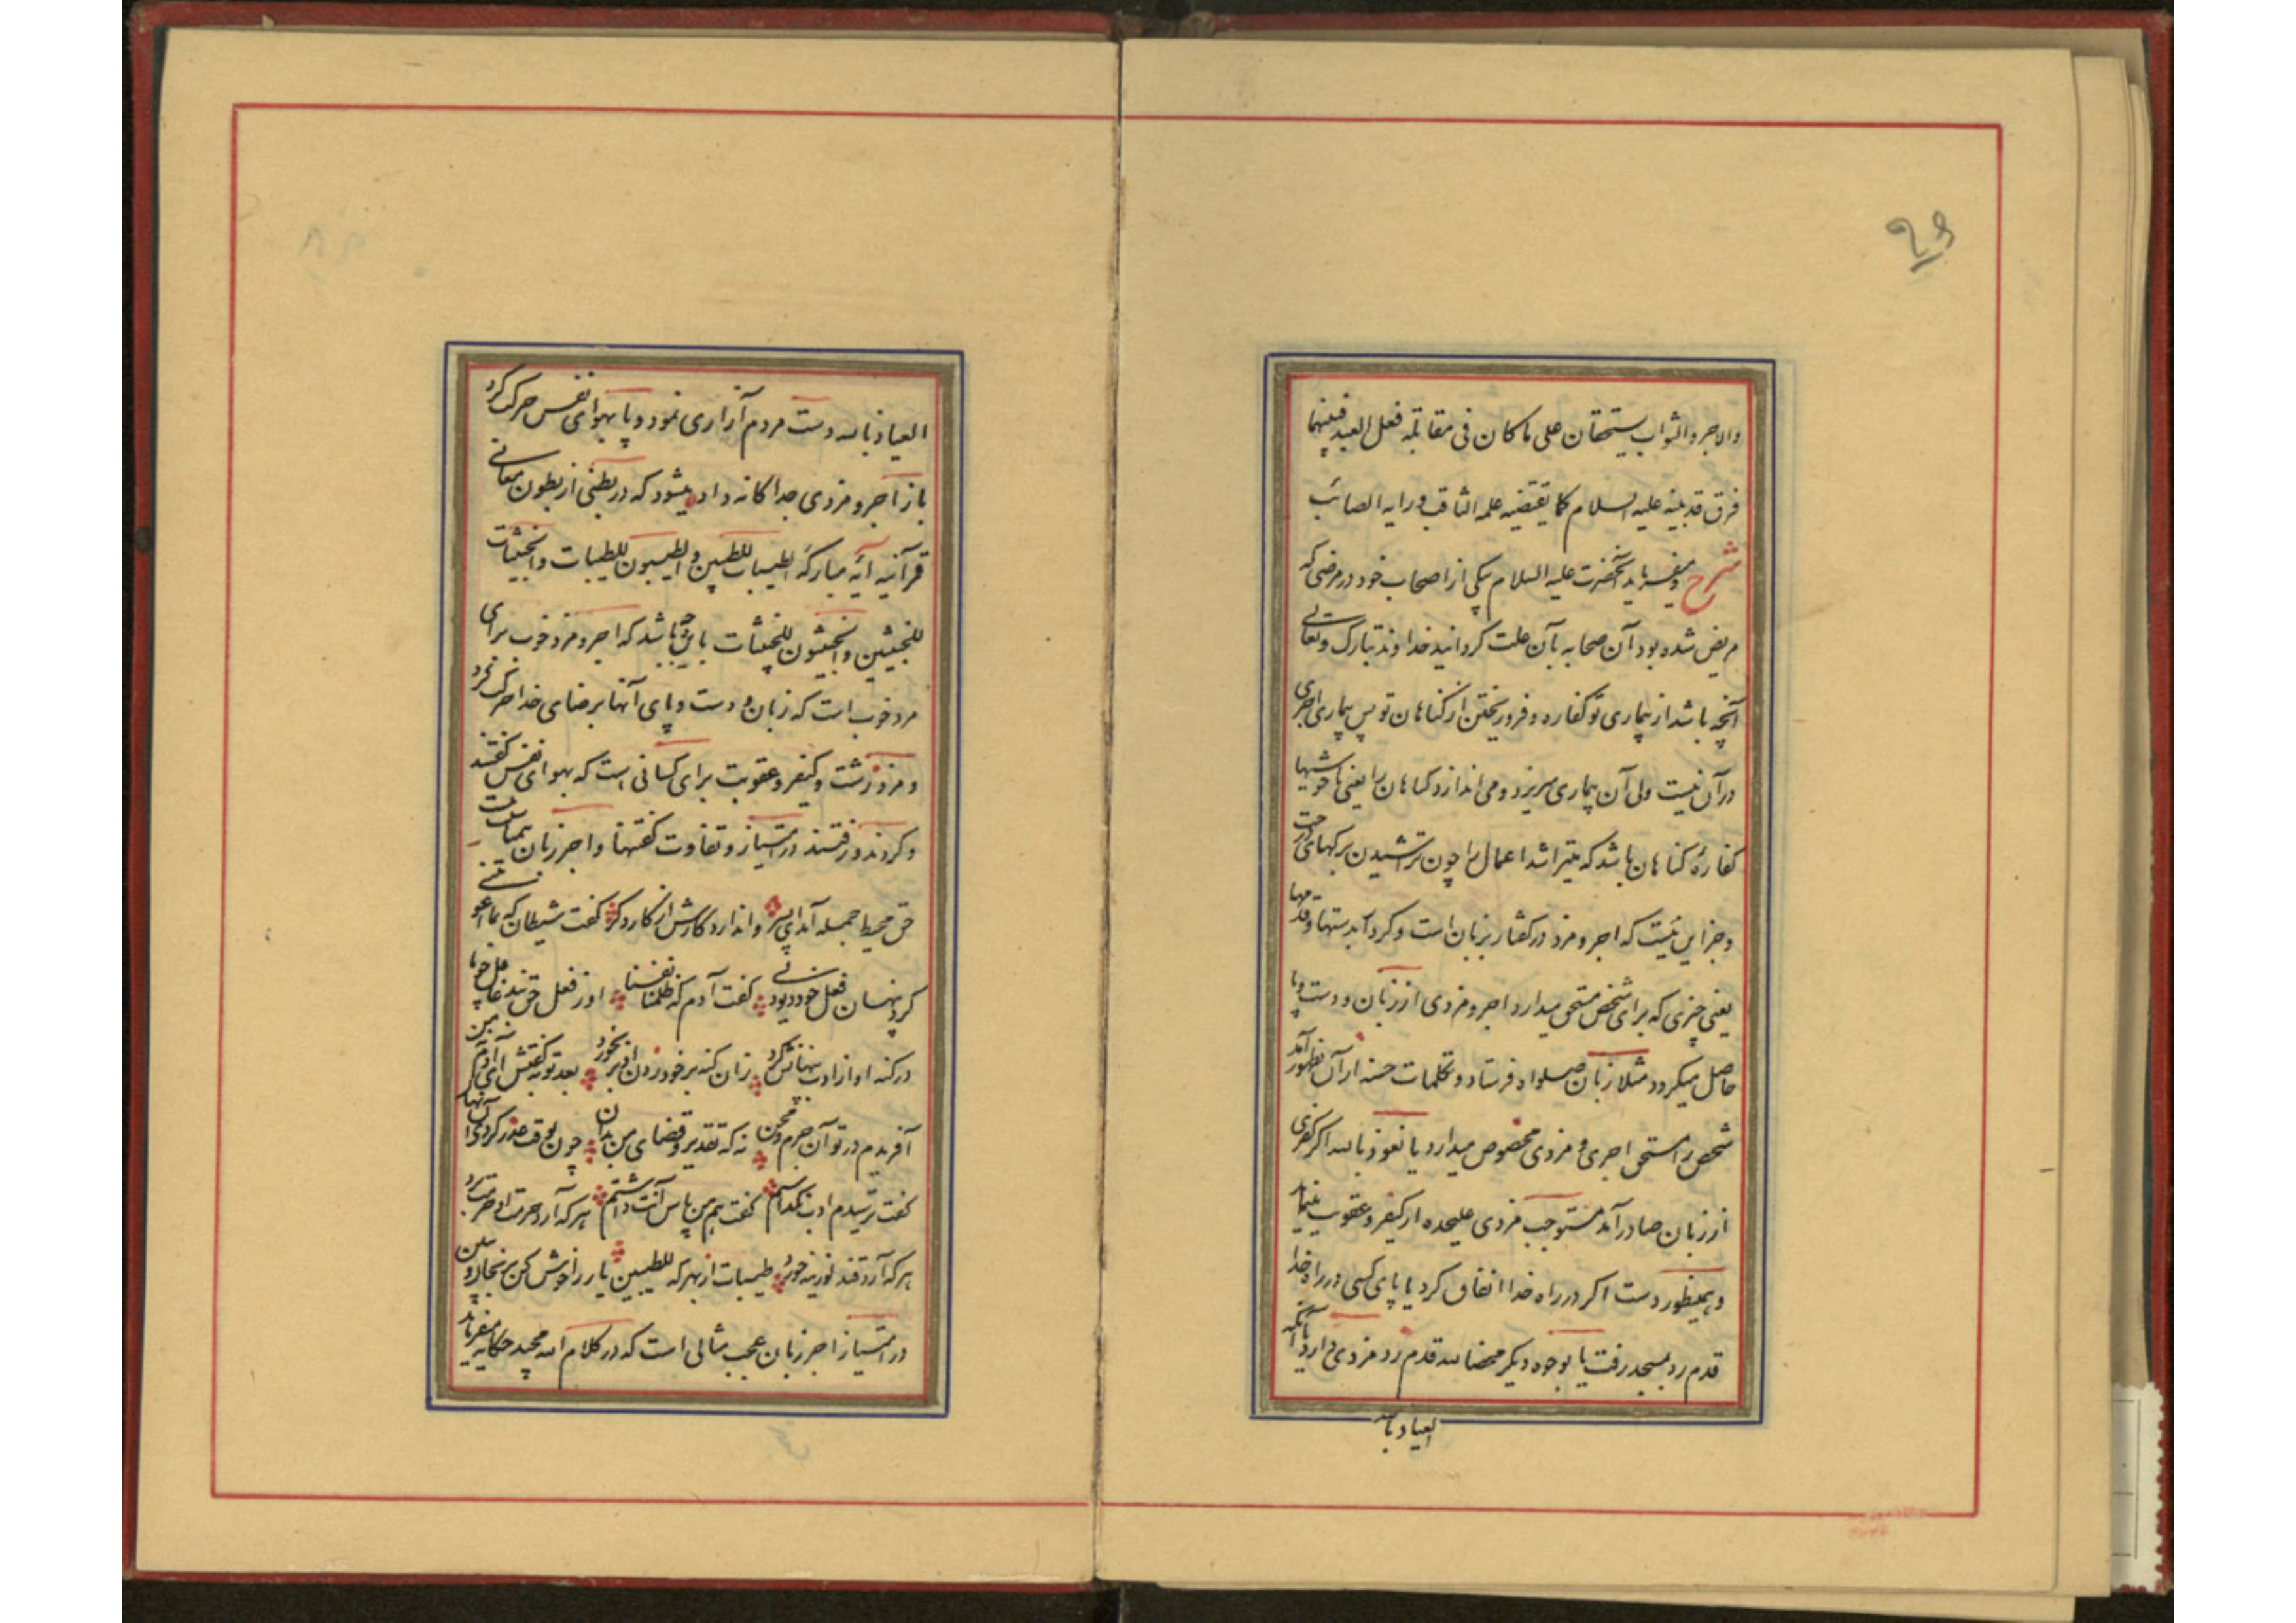 ۲۹
والاجر والثواب یستحقان علی ما کان فی مقابلة فعل العبد فبینهما
فرق قد بینه علیه السلام کما یقتضیه علمه الثاقب و رایه الصائب
شرح و میفرماید آنحضرت علیه السلام بیکی از اصحاب خود در مرضی که
مریض شده بود آن صحابه بآن علت کرداند خداوند تبارک و تعالی
آنچه باشد از بیماری تو کفاره و فرو ریختن از کناهان تو پس بیماری اجری
در آن نیست ولی آن بیماری میریزد و می اندازد کناهان را یعنی ناخوشیها
کفارهٔ کناهان باشد که میتراشد اعمال را چون تراشیدن برکهای درخت
و جز این نیست که اجر و مزد در کفتار بزبان است و کردار بدستها و قدمها
یعنی چیزی که برای شخص مستحق میدارد اجر و مزدی از زبان و دست و پا
حاصل میکردد مثلا زبان صلواة فرستاد و تکلمات حسنه از آن بظهور آمد
شخص را مستحق اجری و مزدی مخصوص میدارد یا نعوذ بالله اکر کفری
از زبان صادر آمد مستوجب مزدی علیحده از کیفر و عقوبت مینماید
و بهمینطور دست اکر در راه خدا انفاق کرد یا پای کسی در راه خدا
قدم زد بمسجد رفت یا بوجوه دیکر محضا لله قدم زد مزدی دارد یا آنکه
العیاذ بالله
العیاذ بالله دست مردم آزاری نمود و پا بهوای نفس حرکت کرد
باز اجر و مزدی جداکانه داده میشود که در بطنی از بطون معانی
قرآنیه آیهٔ مبارکهٔ الطیبات للطیبین و الطیبون للطیبات والخبیثات
للخبیثین والخبیثون للخبیثات باین وجه باشد که اجر و مزد خوب برای
مرد خوب است که زبان و دست و پای آنها برضای خدا حرکت کرد
و مزد زشت و کیفر و عقوبت برای کسانی است که بهوای نفس کفتند
و کردند و رفتند در امتیاز و تفاوت کفتنها و اجر زبان
حق محیط جمله آمد ای پسر وا ندارد کارش از کار دکر کفت شیطان که بما اغویتنی
کرد پنهان فعل خود دیو دنی کفت آدم که ظلمنا نفسنا او ز فعل حق نبد غافل چو ما
در کنه او از ادب پنهانش کرد زان کنه بر خود زدن او بر بخورد بعد توبه کفتش ای آدم نه من
آفریدم در تو آن جرم و محن نه که تقدیر و قضای من بد آن چون بوقت عذر کردی آن نهان
کفت ترسیدم ادب نکذاشتم کفت هم من پاس آنت داشتم هر که آرد حرمت او حرمت برد
هر که آرد قند لوزینه خورد طیبات از بهر که للطیبین یار را خوش کن برنجان و ببین
در امتیاز اجر زبان عجب مثالی است که در کلام الله مجید حکایه میفرماید